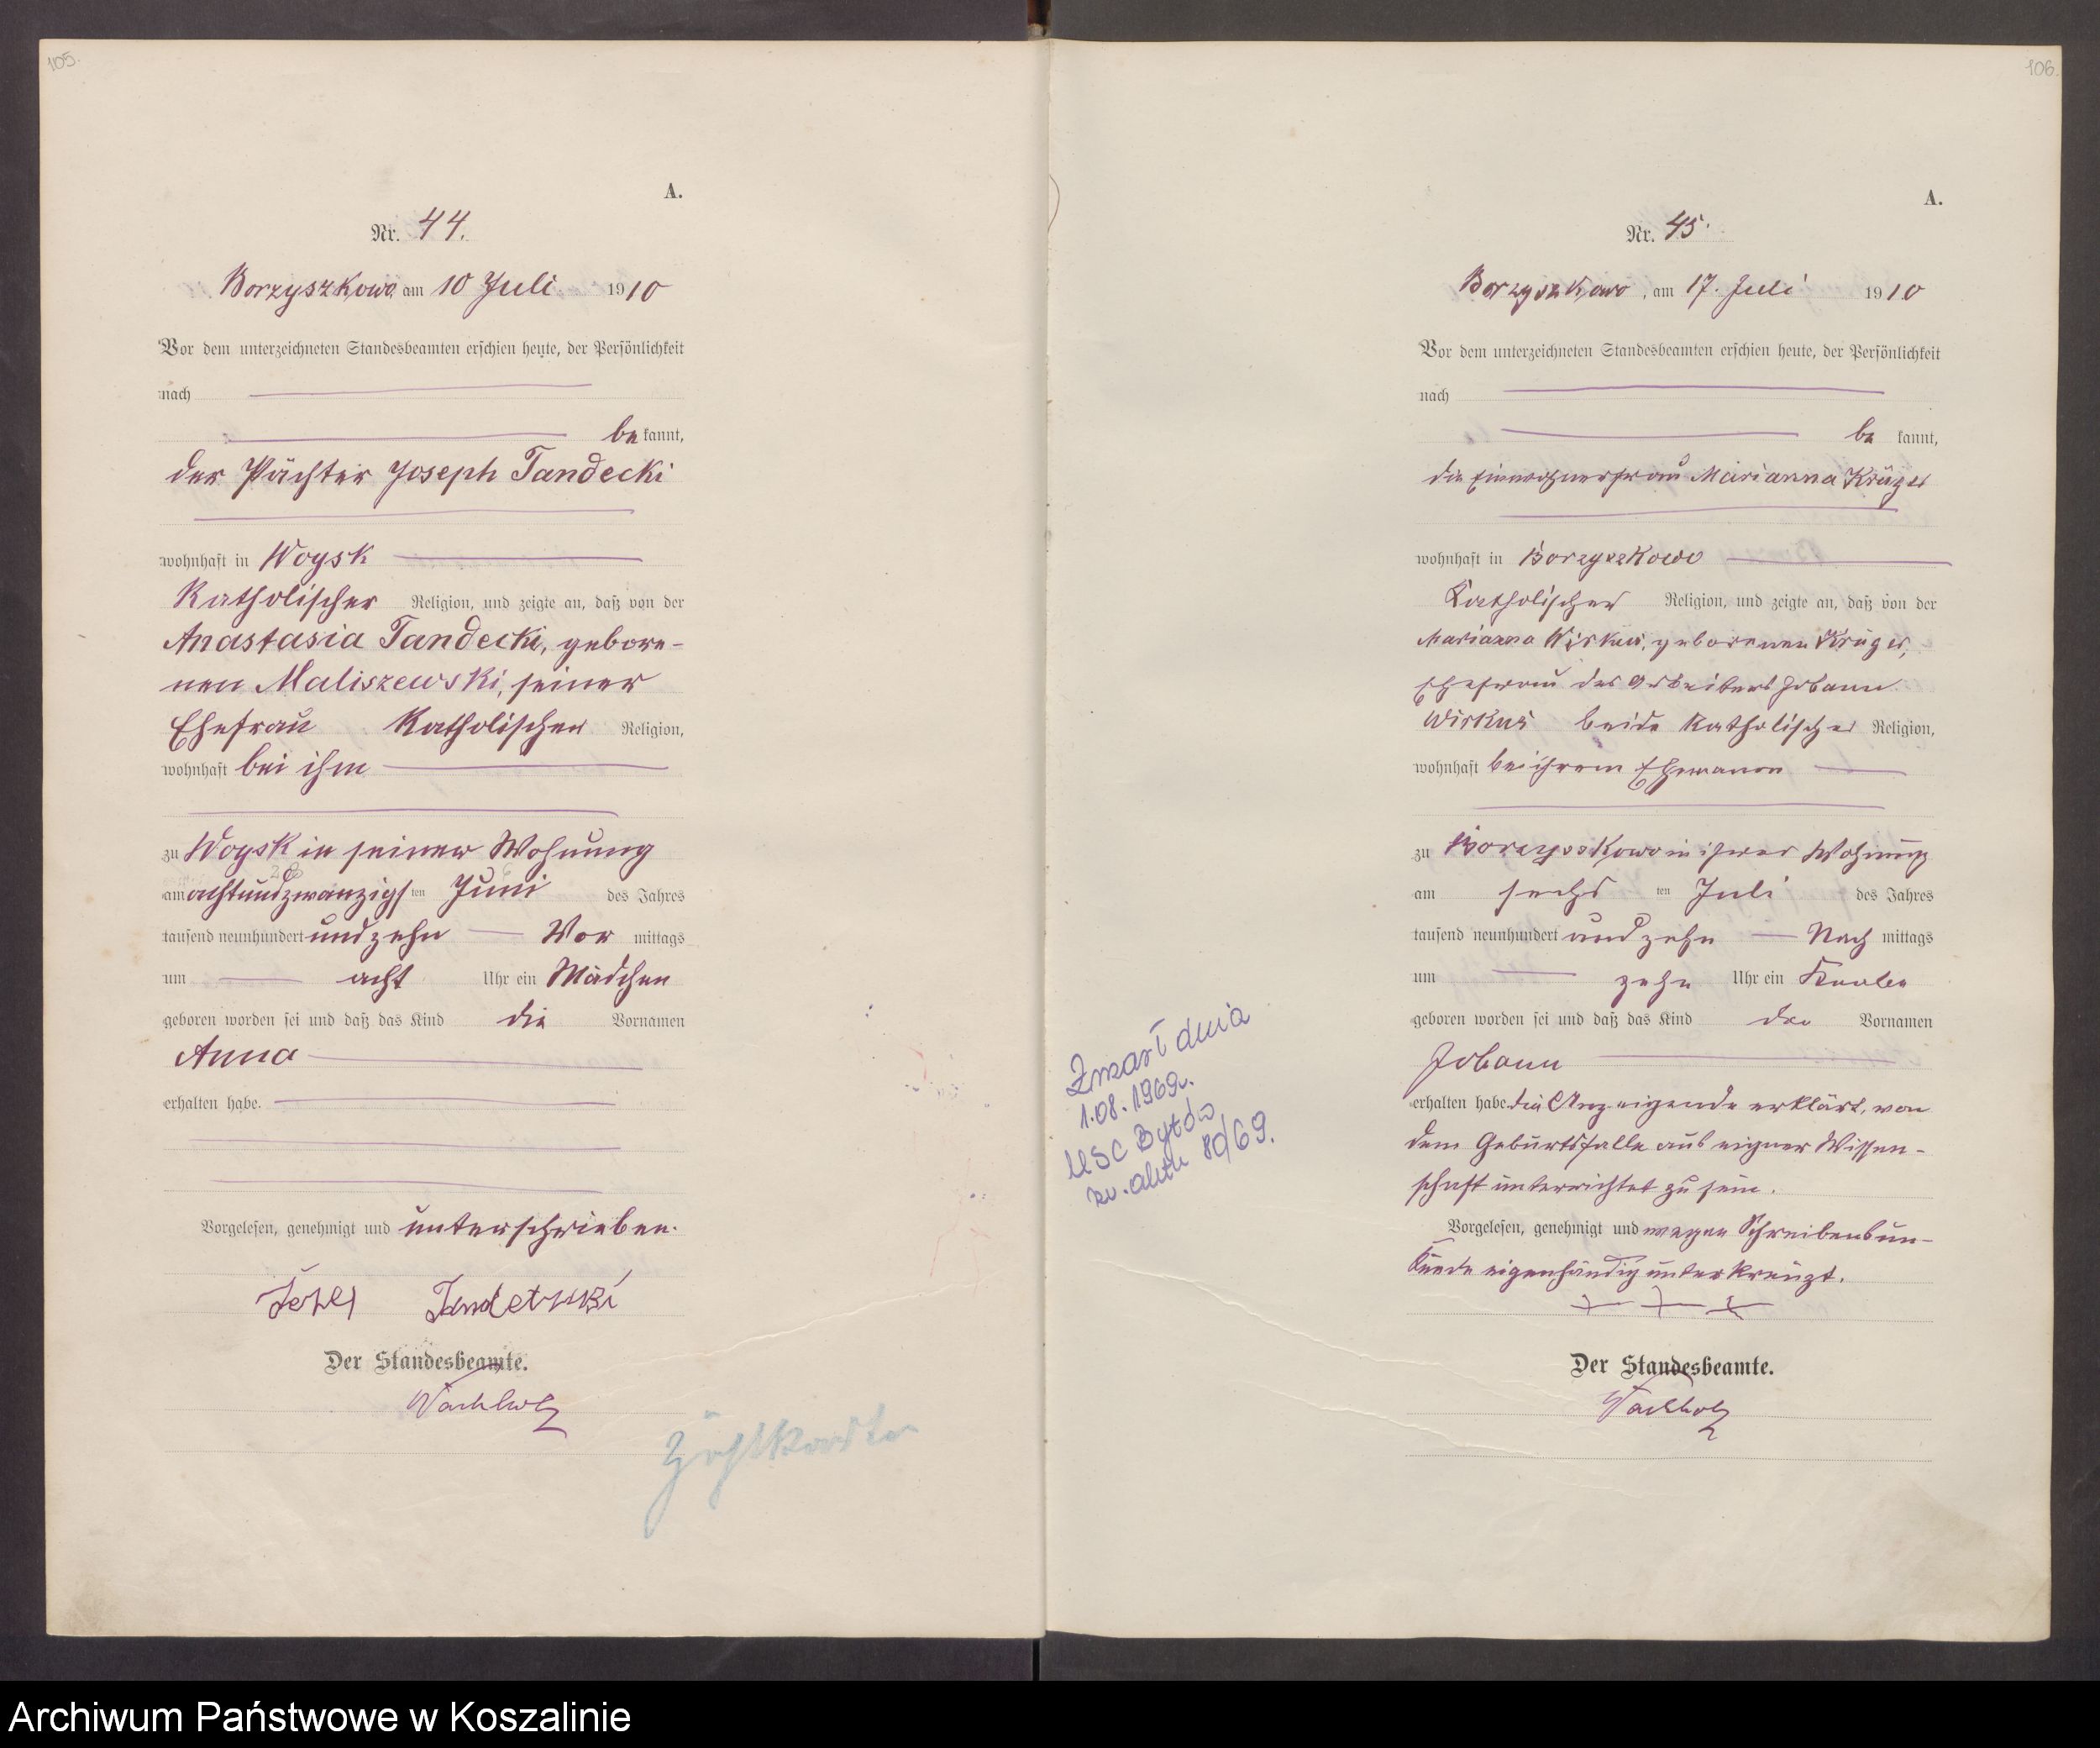 105.
A.
Nr. 44.
Borzyszkowo am 10 Juli 1910
Vor dem unterzeichneten Standesbeamten erschien heute, der Persönlichkeit
nach
be kannt,
der Pächter Joseph Tandecki
wohnhaft in Woysk
Katholischer Religion, und zeigte an, daß von der
Anastasia Tandecki, gebore-
nen Maliszewski, seiner
Ehefrau Katholischer Religion,
wohnhaft bei ihm
zu Woysk in seiner Wohnung
28
am achtundzwanzigsten Juni des Jahres
tausend neunhundert und zehn Vor mittags
um acht Uhr ein Mädchen
geboren worden sei und daß das Kind die Vornamen
Anna
erhalten habe.
Vorgelesen, genehmigt und unterschrieben.
Der Standesbeamte.
Wachholz
Zählkarte
106.
A.
Nr. 45.
Borzyszkowo, am 17. Juli 1910
Vor dem unterzeichneten Standesbeamten erschien heute, der Persönlichkeit
nach
be kannt,
die Einwohnerfrau Marianna Krüger
wohnhaft in Borzyszkowo
Katholischer Religion, und zeigte an, daß von der
Marianna Wirkus, geborenen Krüger,
Ehefrau des Arbeiters Johann
Wirkus beide Katholischer Religion,
wohnhaft bei ihrem Ehemanne
zu Borzyszkowo in ihrer Wohnung
am sechs ten Juli des Jahres
tausend neunhundert und zehn Nach mittags
um zehn Uhr ein Knabe
geboren worden sei und daß das Kind den Vornamen
Johann
erhalten habe. die Anzeigende erklärt, von
dem Geburtsfalle aus eigner Wissen-
schaft unterrichtet zu sein.
Vorgelesen, genehmigt und wegen Schreibensun-
kunde eigenhändig unterkreuzt.
+ + +
Der Standesbeamte.
Wachholz
Zmarł dnia
1.08.1969r.
USC Bytów
nr. aktu 80/69.
Archiwum Państwowe w Koszalinie